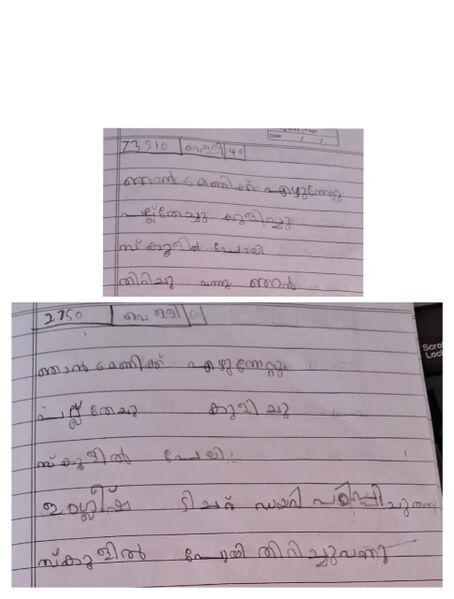 Date
73510 വെള്ളി 40
ഞാൻ 6 മണിക്ക് എഴുന്നേറ്റു
പല്ല്തേച്ചു കുളിച്ചു
സ്കൂളിൽ പോയി
തിരിച്ചു വന്നു ഞാൻ
2750 വെള്ളി
ഞാൻ 6 മണിക്ക് എഴുന്നേറ്റു.
പല്ല്തേച്ചു കുളിച്ചു
സ്കൂളിൽ പോയി
ഇംഗ്ലീഷ് ടിച്ചർ ഡയറി പഠിപ്പിച്ചുതന്നു
സ്കൂളിൽ പോയി തിരിച്ചുവന്നു
Scro
Lock